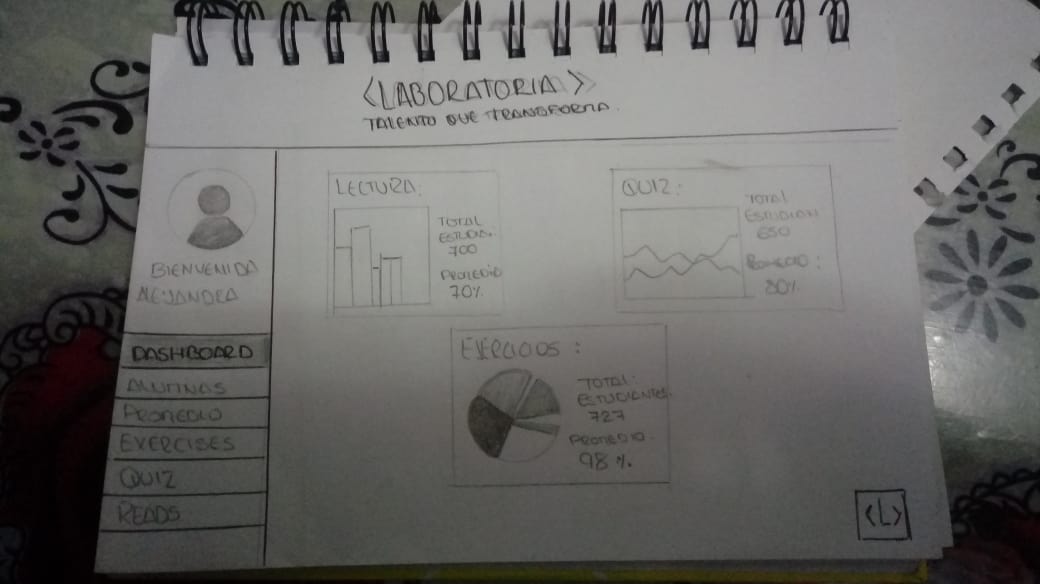 <LABORATORIA>
TALENTO QUE TRANSFORMA.
BIENVENIDA
ALEJANDRA
DASHBOARD
ALUMNAS
PROMEDIO
EXERCISES
QUIZ
READS
LECTURA:
TOTAL
ESTUDIAN:
700
PROMEDIO
70%
QUIZ:
TOTAL
ESTUDIAN
650
PROMEDIO:
80%
EJERCICIOS:
TOTAL:
ESTUDIANTES:
727
PROMEDIO.
98%
<L>